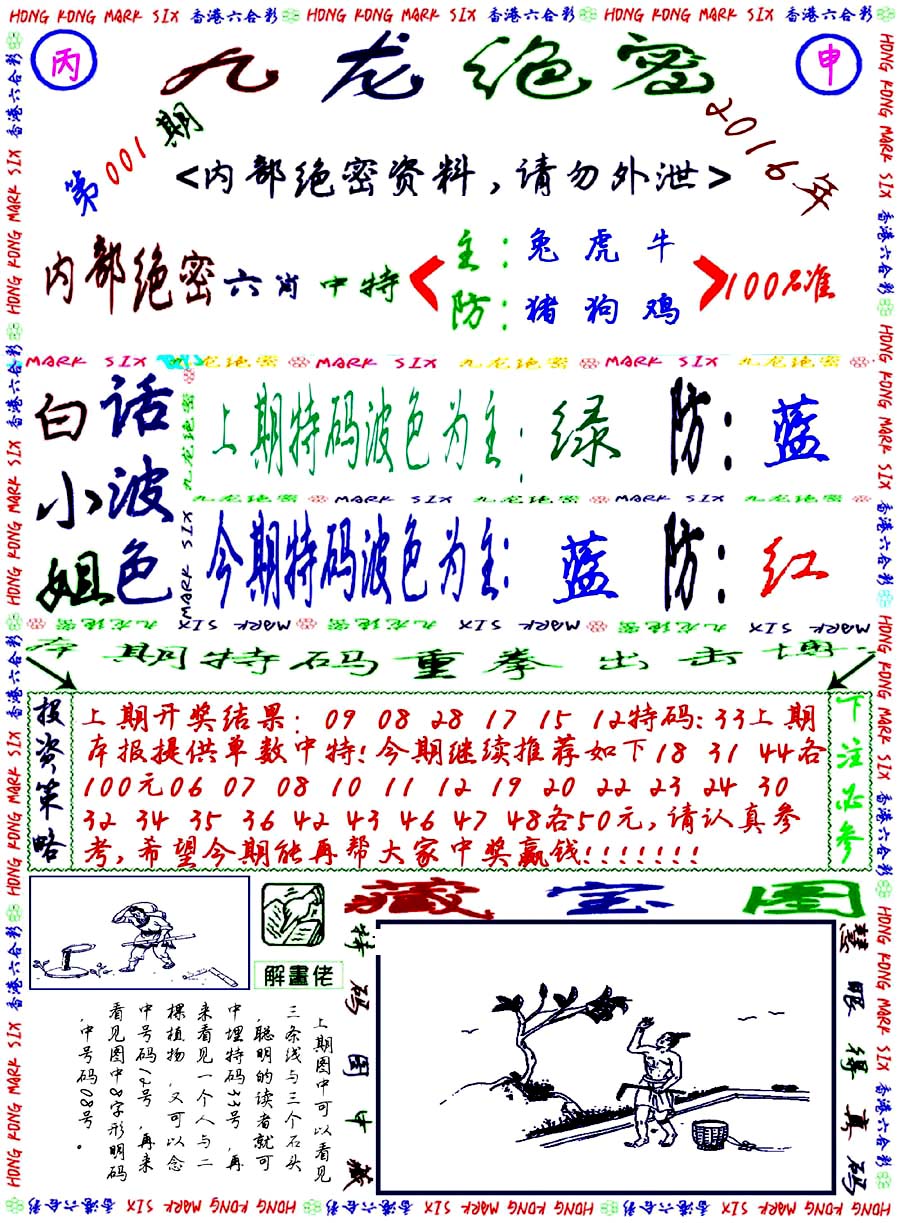 HONG KONG MARK SIX 香港六合彩 HONG KONG MARK SIX 香港六合彩 HONG KONG MARK SIX 香港六合彩
丙
九龙绝密
申
第001期
2016年
<内部绝密资料,请勿外泄>
内部绝密六肖中特
主:兔虎牛
防:猪狗鸡
100%准
MARK SIX 九龙绝密 MARK SIX 九龙绝密 MARK SIX 九龙绝密
白话小姐
波色
上期特码波色为主:绿 防:蓝
九龙绝密 MARK SIX 九龙绝密 MARK SIX 九龙绝密
今期特码波色为主:蓝 防:红
九龙绝密 MARK SIX 九龙绝密 MARK SIX 九龙绝密 MARK SIX
本期特码重拳出击博
投资策略
上期开奖结果:09 08 28 17 15 12特码:33上期
本报提供单数中特!今期继续推荐如下18 31 44各
100元06 07 08 10 11 12 19 20 22 23 24 30
32 34 35 36 42 43 46 47 48各50元,请认真参
考,希望今期能再帮大家中奖赢钱!!!!!!!
下注必参
解畫佬
藏宝图
上期图中可以看见
三条线与三个石头
,聪明的读者就可
中埋特码33号,再
来看见一个人与二
棵植物,又可以念
中号码12号,再来
看见图中8字形明码
,中号码08号。
特码图中藏
慧眼得真码
HONG KONG MARK SIX 香港六合彩 HONG KONG MARK SIX 香港六合彩 HONG KONG MARK SIX 香港六合彩